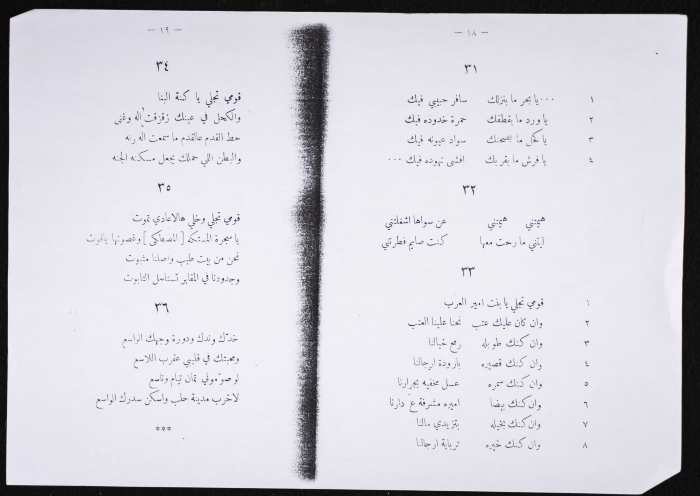 — ١٨ —
٣١
١ ...يا بحر ما بنزلك سافر حبيبي فيك
٢ يا ورد ما بقطفك حمرة خدوده فيك
٣ يا كحل ما بصحنك سواد عيونه فيك
٤ يا فرش ما بقربك افشى نهوده فيك ...
٣٢
هيمتني هيمتني عن سواها اشغلتني
ليتني ما رحت معها كنت صايم فطرتني
٣٣
١ قومي تجلي يا بنت امير العرب
٢ وان كان عليك عتب نحنا علينا العتب
٣ وان كنك طويله رمح خيالنا
٤ وان كنك قصيره بارودة ارجالنا
٥ وان كنك سمره عسل مخفيه بجرارنا
٦ وان كنك بيضا اميره مشرفة ع دارنا
٧ وان كنك بخيله بتزيدي مالنا
٨ وان كنك خيره ترباية ارجالنا
— ١٩ —
٣٤
قومي تجلي يا كنة البنا
والكحل في عينك زقزقت له وغنى
حط القدم عالقدم ما سمعت له رنه
والبطن اللي حملك يجعل مسكنه الجنه
٣٥
قومي تجلي وخلي هالاعادي تموت
يا سجرة المستكه [المصطكى] وغصونها ياقوت
نحن من بيت طيب واصلنا مثبوت
وجدودنا في المقابر تستاهل التابوت
٣٦
خدّك وندك ودورة وجهك الواسع
ومحبتك في قلبي عقرب اللاسع
لو صوّموني تمان تيام وتاسع
لاخرب مدينة حلب واسكن سدرك الواسع
***